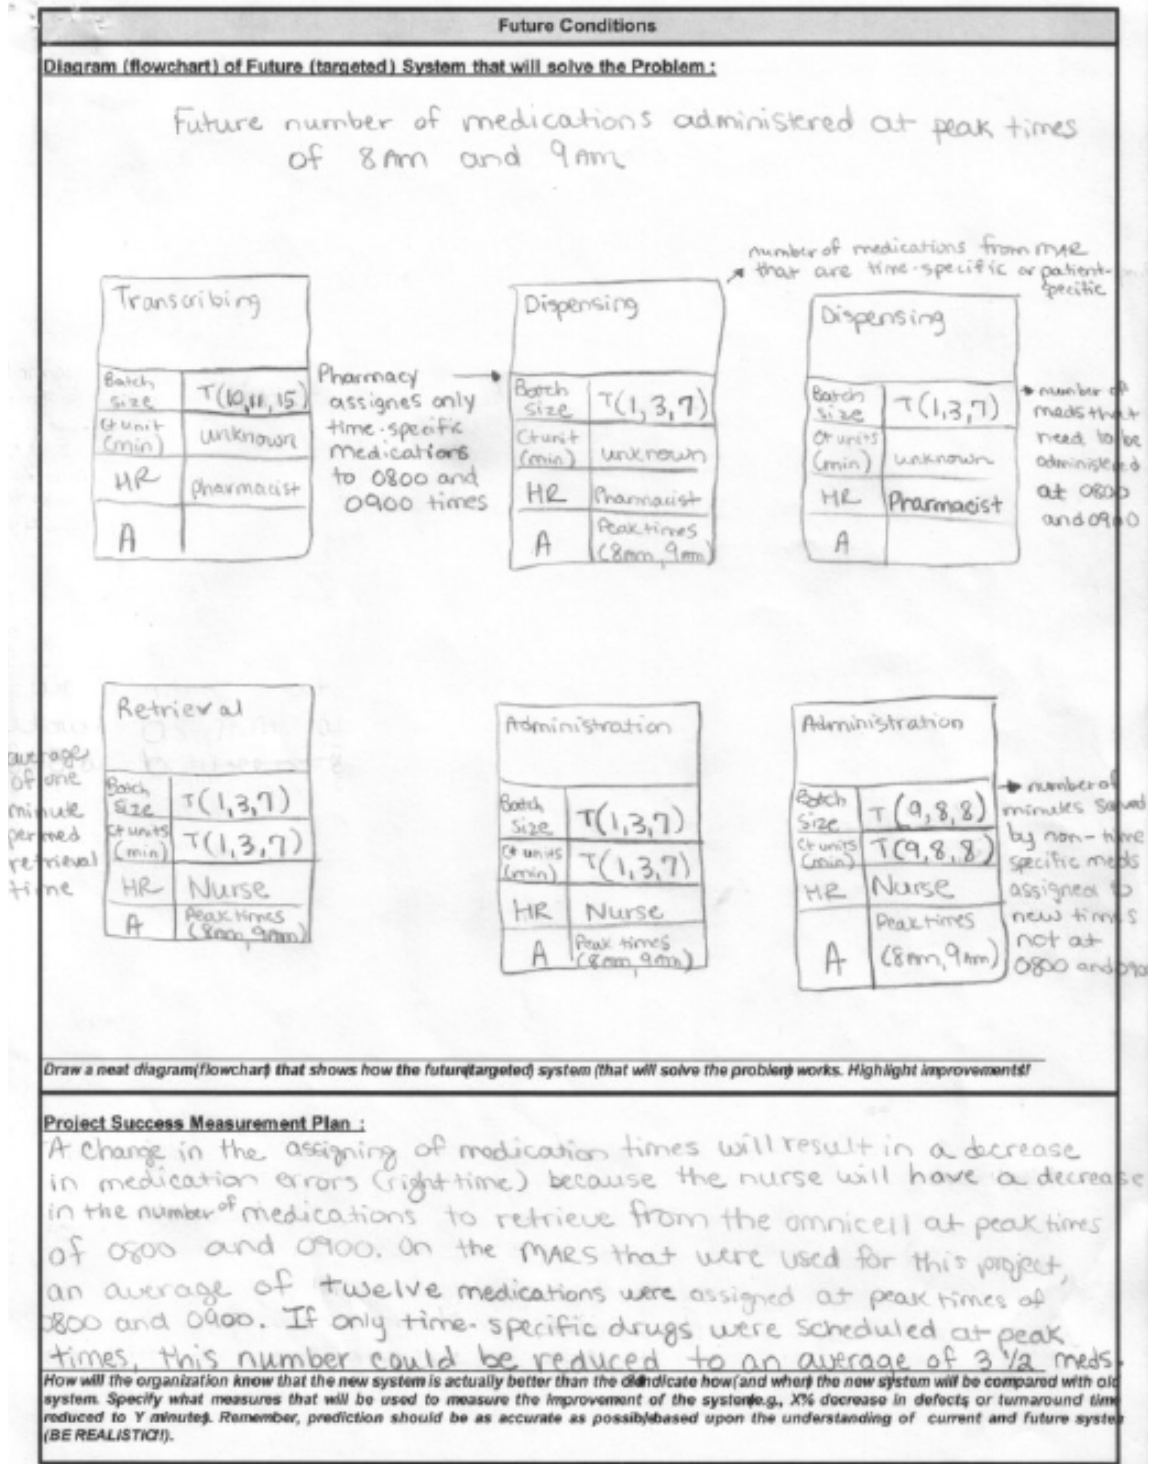 Future Conditions
Diagram (flowchart) of Future (targeted) System that will solve the Problem :
Future number of medications administered at peak times
of 8Am and 9Am
number of medications from MAR
that are time-specific or patient-
specific
Transcribing
Batch size T(10,11,15)
Ct unit (min) unknown
HR pharmacist
A
Pharmacy
assignes only
time-specific
medications
to 0800 and
0900 times
Dispensing
Batch size T(1,3,7)
Ct unit (min) unknown
HR Pharmacist
A Peak times (8am, 9am)
Dispensing
Batch size T(1,3,7)
Ct units (min) unknown
HR Pharmacist
A
number of
meds that
need to be
administered
at 0800
and 0900
average
of one
minute
per med
retrieval
time
Retrieval
Batch size T(1,3,7)
Ct units (min) T(1,3,7)
HR Nurse
A Peak times (8am, 9am)
Administration
Batch size T(1,3,7)
Ct units (min) T(1,3,7)
HR Nurse
A Peak times (8am, 9am)
Administration
Batch size T(9,8,8)
Ct units (min) T(9,8,8)
HR Nurse
A Peak times (8am, 9am)
number of
minutes saved
by non-time
specific meds
assigned to
new times
not at
0800 and 0900
Draw a neat diagram(flowchart) that shows how the future(targeted) system (that will solve the problem) works. Highlight improvements!
Project Success Measurement Plan :
A change in the assigning of medication times will result in a decrease
in medication errors (right time) because the nurse will have a decrease
in the number of medications to retrieve from the omnicell at peak times
of 0800 and 0900. On the MARS that were used for this project,
an average of twelve medications were assigned at peak times of
0800 and 0900. If only time-specific drugs were scheduled at peak
times, this number could be reduced to an average of 3 1/2 meds.
How will the organization know that the new system is actually better than the indicate how(and when) the new system will be compared with old
system. Specify what measures that will be used to measure the improvement of the system e.g., X% decrease in defects or turnaround time
reduced to Y minutes). Remember, prediction should be as accurate as possible based upon the understanding of current and future system
(BE REALISTIC!!).